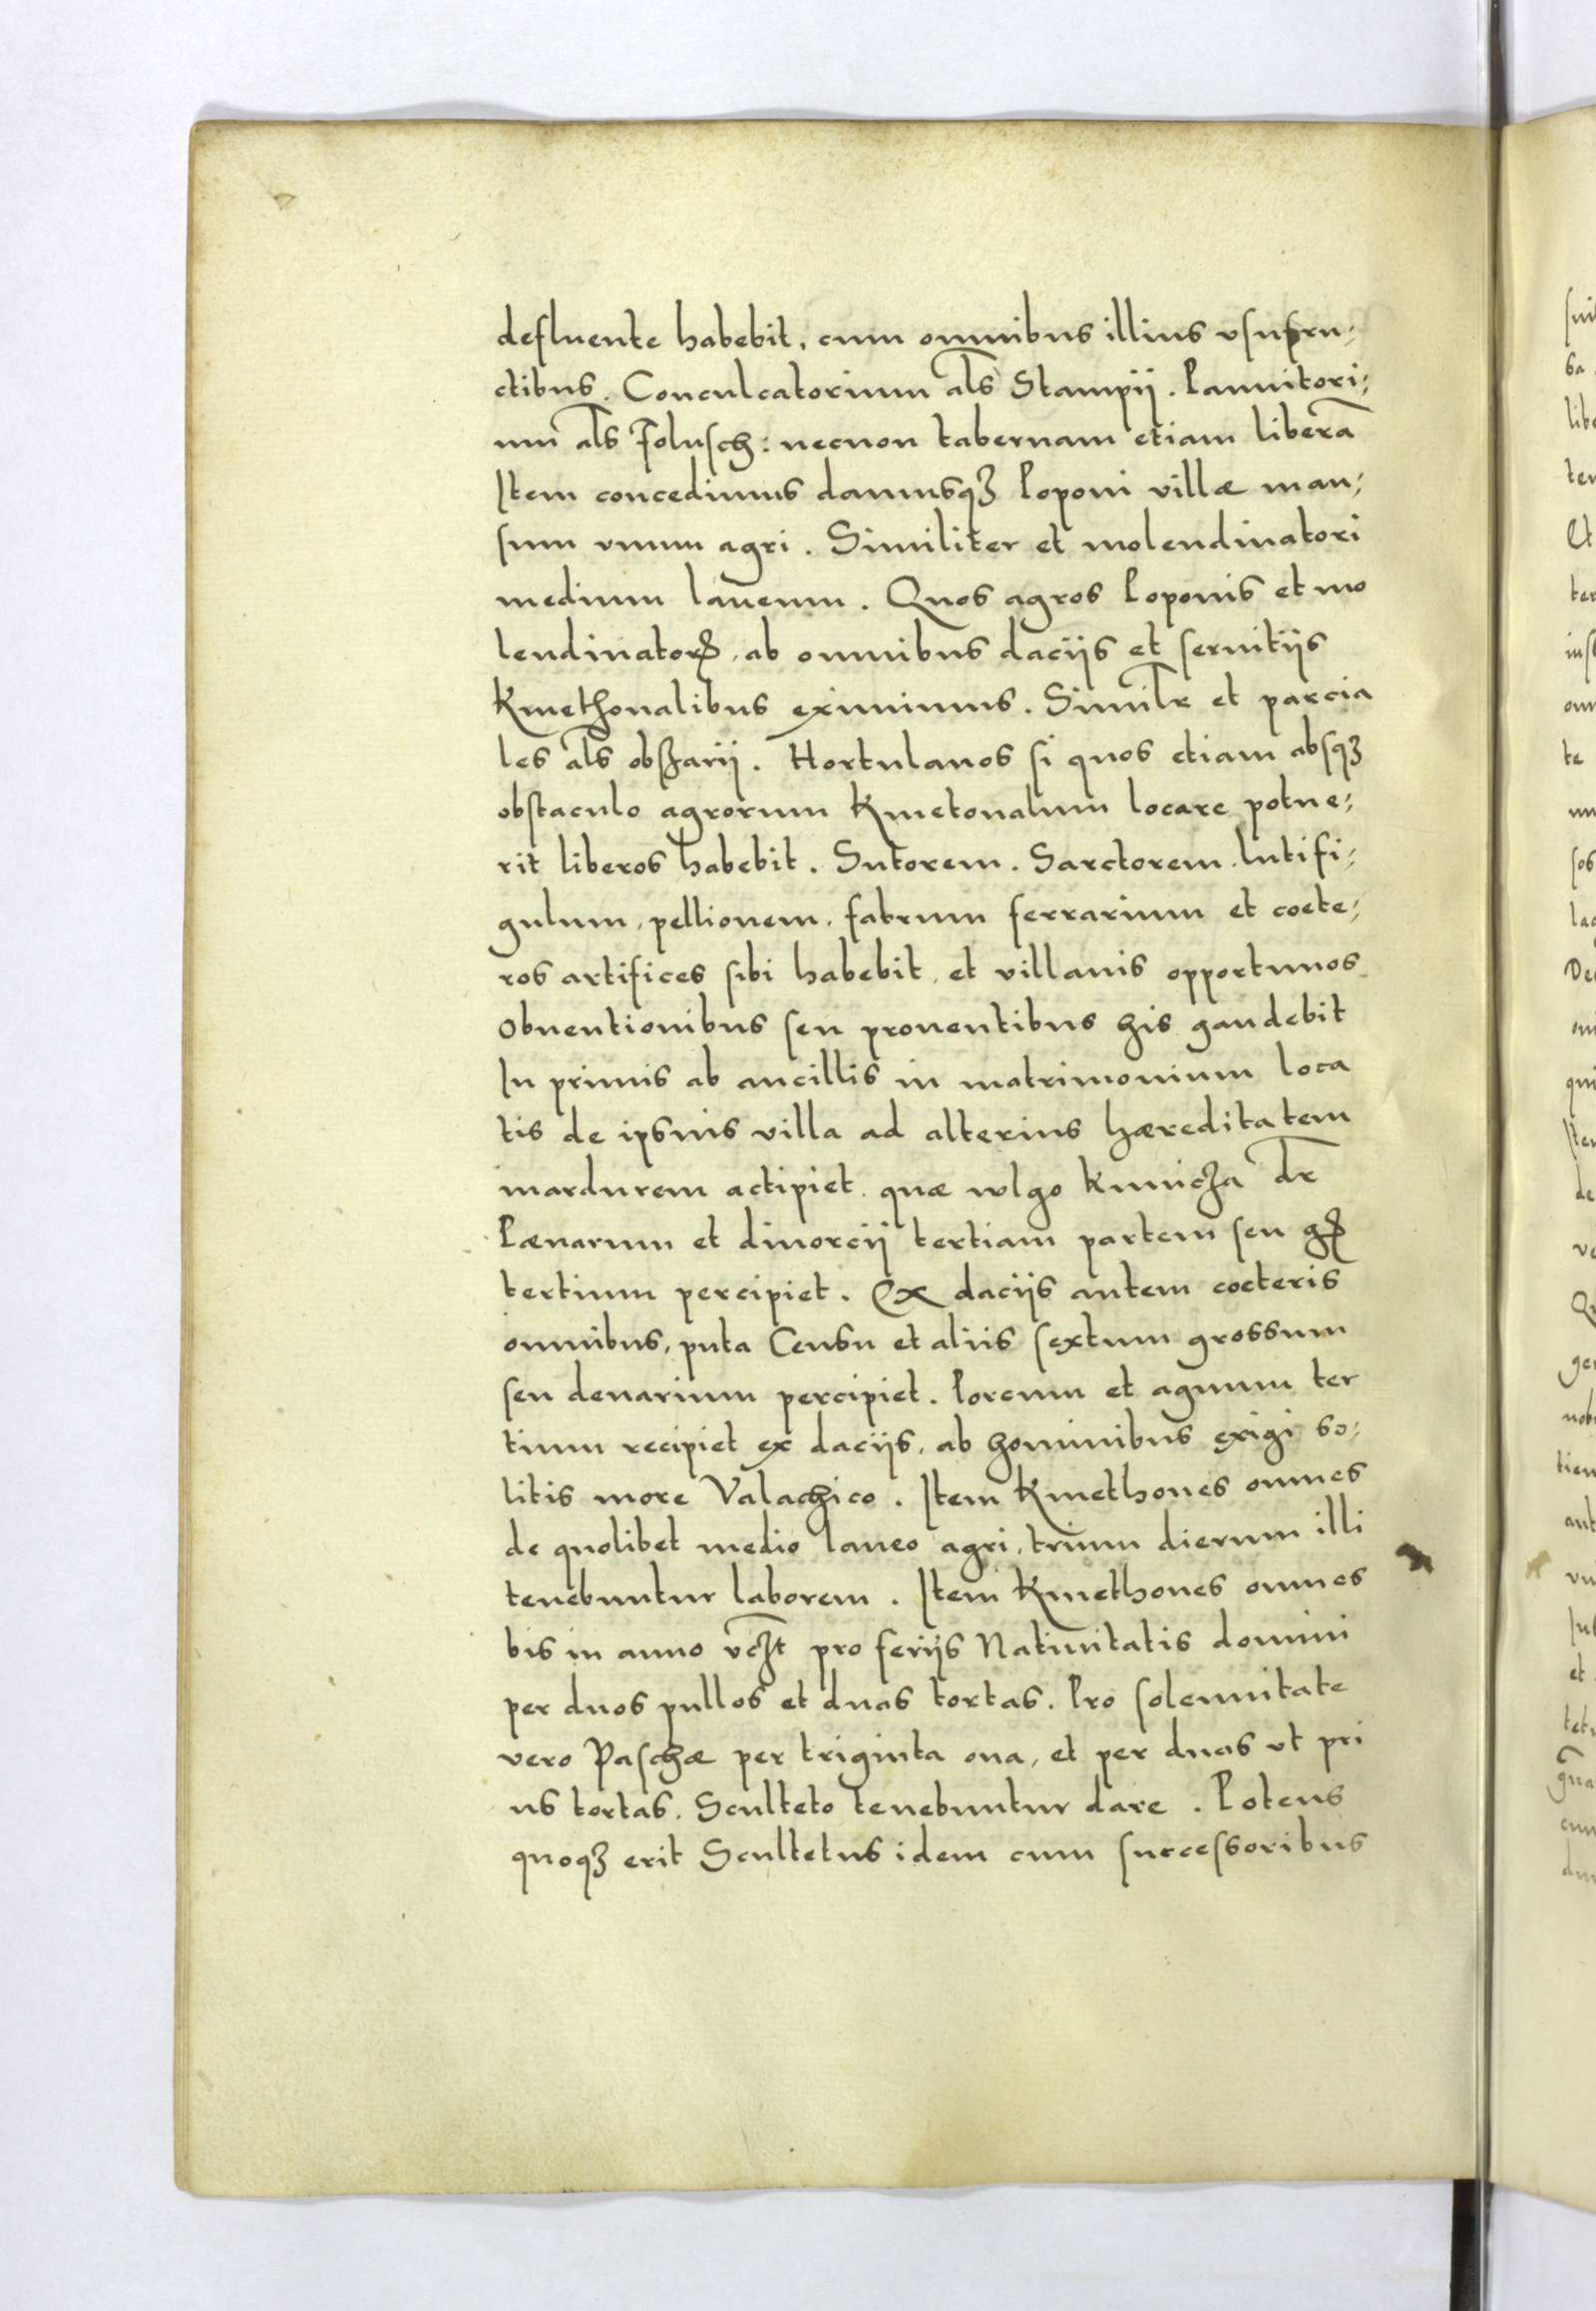 defluente habebit, cum omnibus illius vsufru⸗
ctibus. Conculcatorium als̄ Stampij. Pannitori⸗
um als̄ Folusch: necnon tabernam etiam liberā
Item concedimus damusqꝫ Poponi villæ man⸗
sum vnum agri. Similiter et molendinatori
medium laneum. Quos agros Poponis et mo
lendinatorꝭ, ab omnibus dacijs et seruitijs
Kmethonalibus eximimus. Simil̄r et parcia
les als̄ obszarij. Hortulanos si quos etiam absqꝫ
obstaculo agrorum Kmetonalium locare potue⸗
rit liberos habebit. Sutorem. Sarctorem. lutifi⸗
gulum, pellionem, fabrum ferrarium et coete⸗
ros artifices sibi habebit, et villanis opportunos
Obuentionibus seu prouentibus his gaudebit
In primis ab ancillis in matrimonium loca
tis de ipsius villa ad alterius hæreditatem
mardurem actipiet. quæ wlgo kunicza dr̄
Pænarum et diuorcij tertiam partem seu gꝭ
tertium percipiet. Ex dacijs autem coeteris
omnibus, puta Censu et aliis sextum grossum
seu denarium percipiet. Porcum et agnum ter
tium recipiet ex dacijs, ab hominibus exigi so⸗
litis more Valachico. Item Kmethones omnes
de quolibet medio laneo agri, trium dierum illi
tenebuntur laborem. Item Kmethones omnes
bis in anno vczt pro ferijs Natiuitatis domini
per duos pullos et duas tortas. Pro solennitate
vero Paschæ per triginta oua, et per duas vt pri
us tortas. Sculteto tenebuntur dare. Potens
quoqꝫ erit Scultetus idem cum successoribus